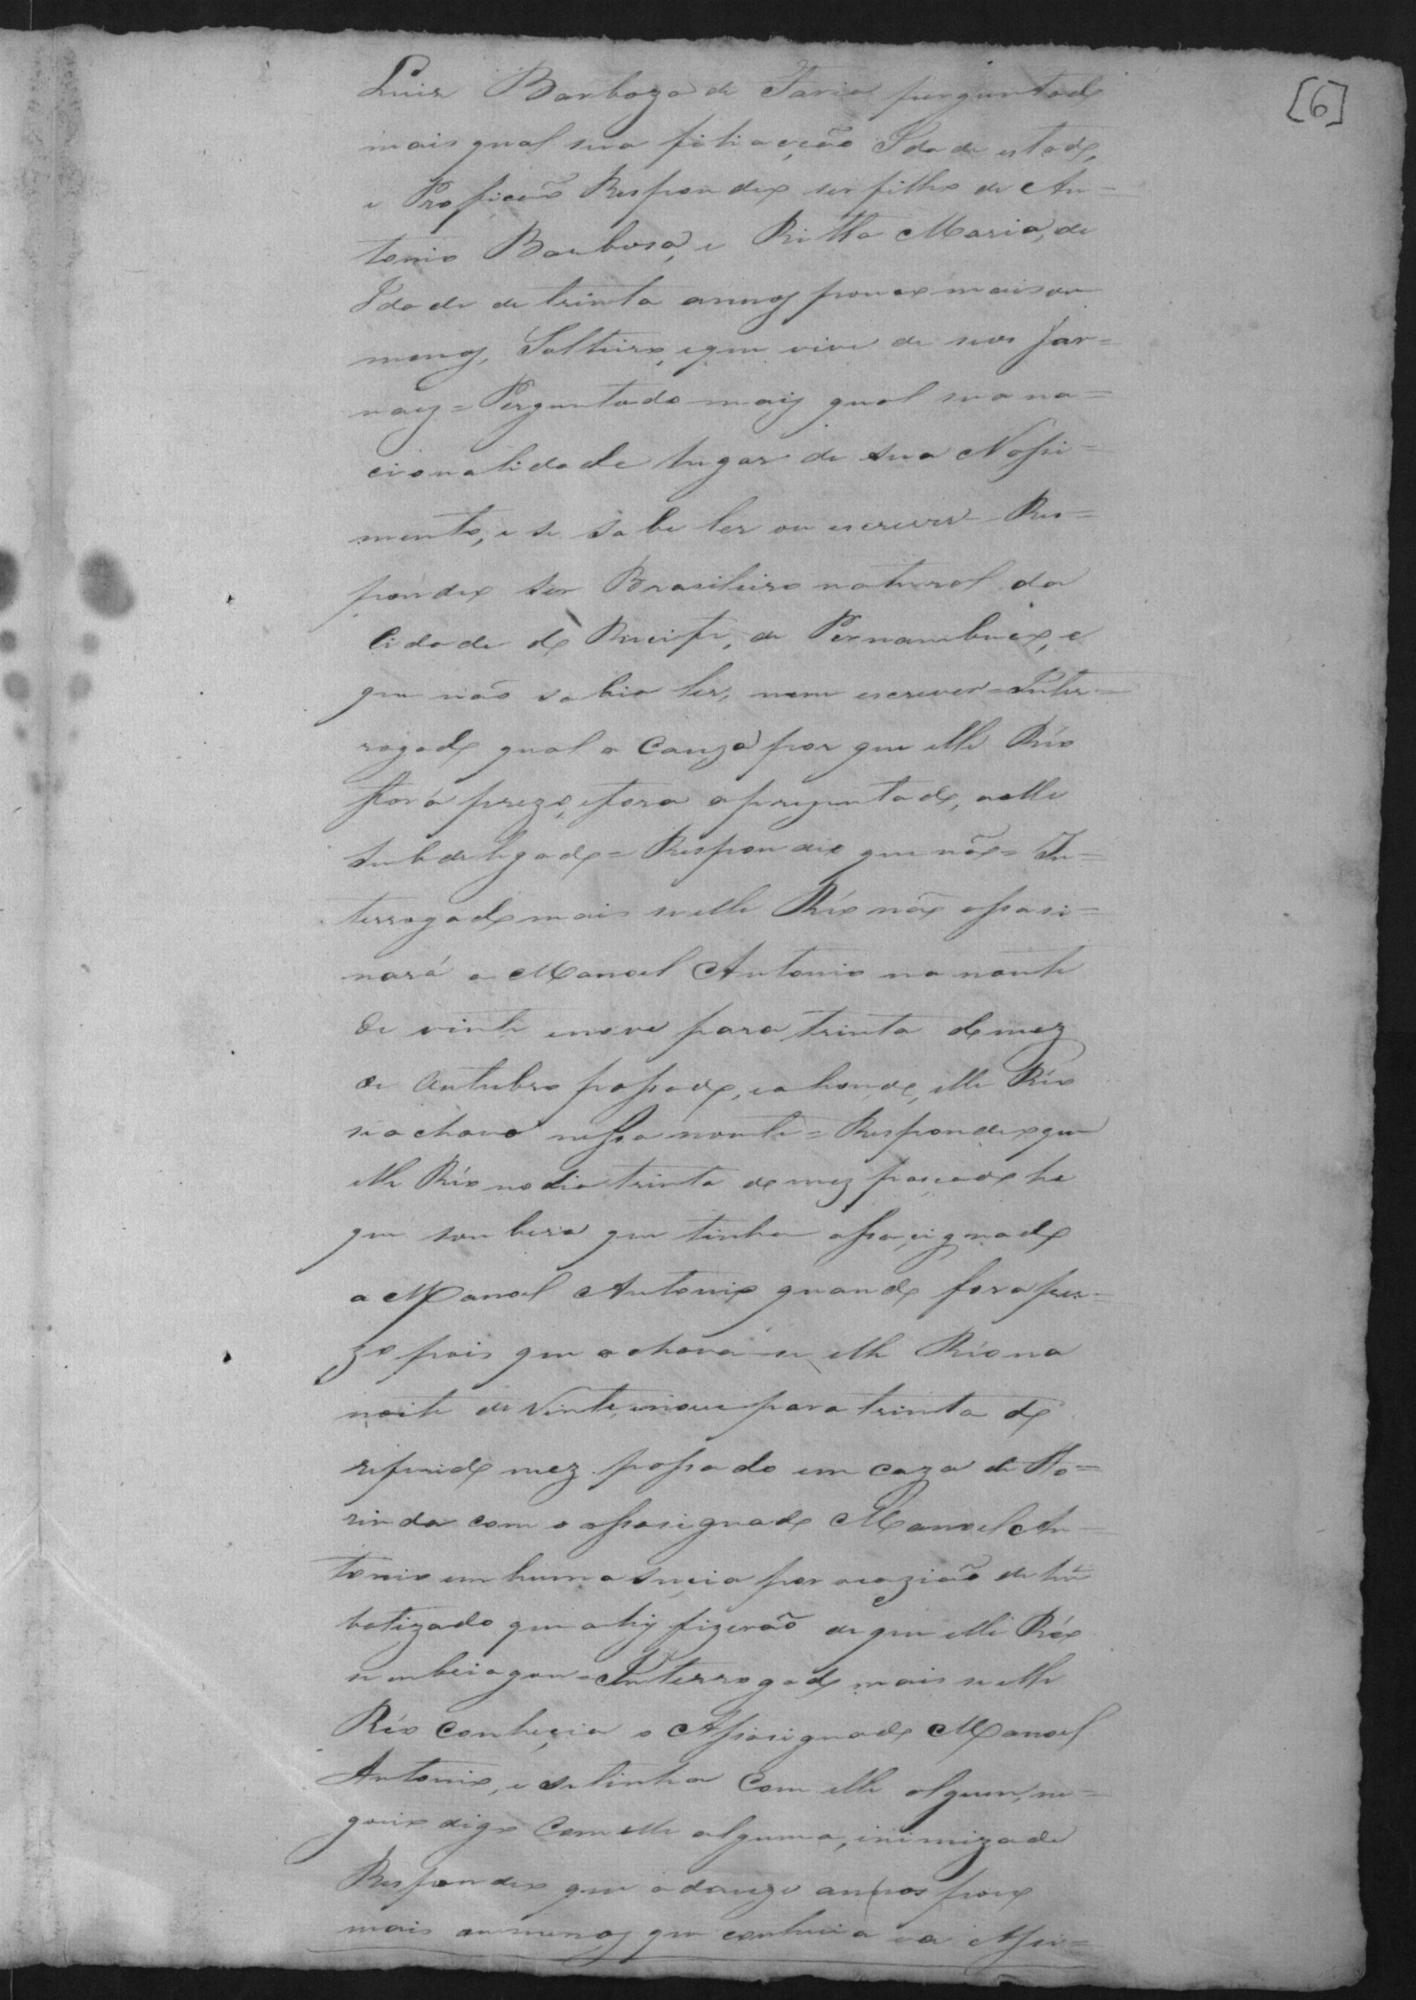 [6]
Luiz Barboza de Faria perguntado
mais qual sua filiacção Idade estado,
e Proficão Respondeo ser filho de An=
tonio Barbosa, e Ritta Maria, de
Idade de trinta annos pouco mais ou
menos, Solteiro, e que vive de seos Jor=
naes= Perguntado mais qual sua na=
cionalidade lugar de sua Nassi=
mento, e se sabe ler ou escrever- Res=
pondeo ser Brasileiro natural da
Cidade do Recife, de Pernambuco, e
que não sabia ler, nem escrever= Inter=
rogado qual a Cauza por que elle Réo
fora prezo, e fora aprezentado, a elle
Subdelegado= Respondeo que não= In=
terrogado mais se elle Réo não assasi=
nará a Manoel Antonio na nonte
de vinte e nove para trinta do mez
de Outubro passado, e ahonde, elle Réo
se achava nessa nonte= Respondeo que
elle Réo no dia trinta do mez pascado he
que soubera que tinha assacignado
a Manoel Antonio quando fora pre=
zo pois que achava-se elle Réo na
noite de Vinte e nove para trinta do
referido mez passado em caza de Flo=
rinda com o assasignado Manoel An=
tonio em huma sucia por ocazião de hũ
batizado que ahy fizerão de que elle Réo
se embriagou= Interrogado mais se elle
Réo conhecia o Assasignado Manoel
Antonio, e se tinha Com elle algum, ne=
gocio digo Com elle alguma, inimizade
Respondeo que a doze annos pouco
mais ou menos que conhecia ao Assa=